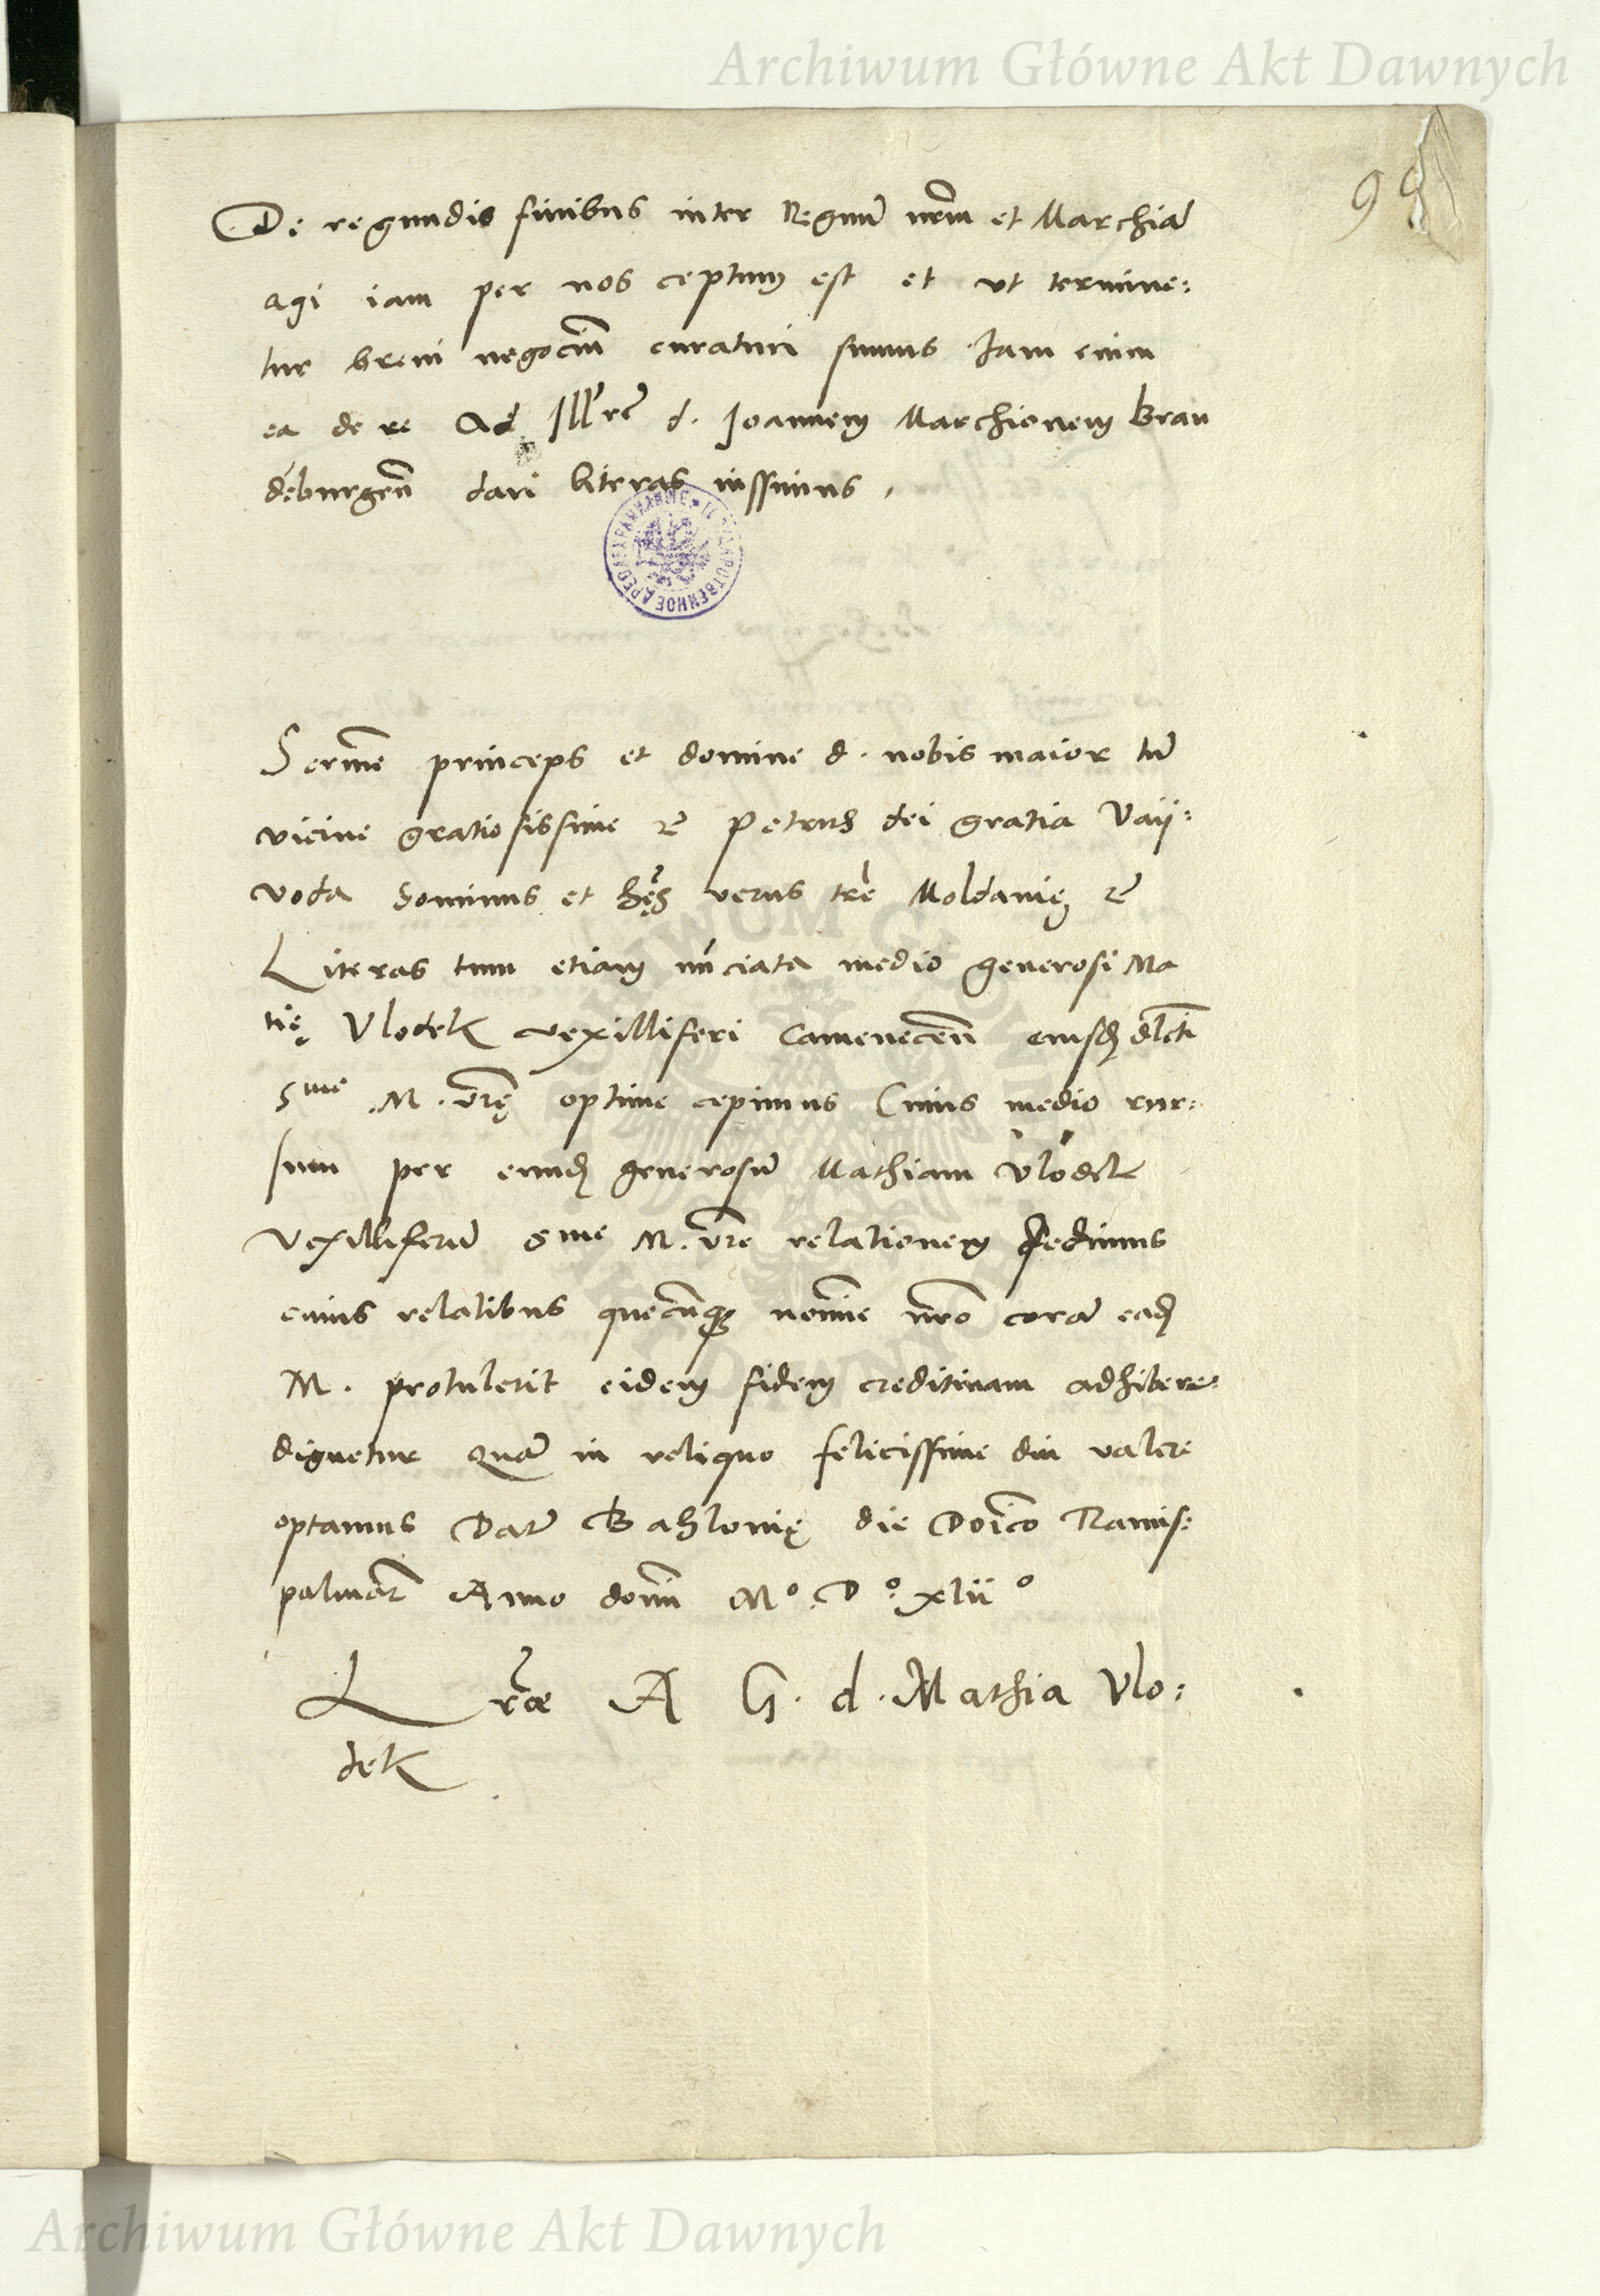 Archiwum Główne Akt Dawnych
De regundis finibus inter Regnū nrm̄ et Marchiā
agi iam per nos ceptum est et ut termine:
tur brevi negociū curaturi sumus Iam enim
ea de re Ad Illrē d. Ioannem Marchionem Bran
dēburgeñ dari literas iussimus.
Serm̄e princeps et domine d. nobis maior tū
vicine gratiosissime Petrus dei gratia Vaij:
voda Dominus et hęs verus tr̄e Moldavię
Literas tum etiam nūciata medio generosi Ma
tię Vlodek vexilliferi Cameneceñ eiusd̄ dlcti
Sme M. vr̄ę optime cepimus Cuius medio rur:
sum per eund̄ generosū Mathiam Vlodek
Vexilliferū Sme M. vr̄e relationem fecimus
cuius relatibus quecūq nomīe nr̄o corā ead̄
M. protulerit eidem fidem creditivam adhibere
dignetur Quā in reliquo felicissime diu valere
optamus Dat̄ Bahlovię die Doīco Ramis:
palmar̄ Anno domī Mo. Do. xlii o
Lr̄ae A G. d. Mathia Vlo:
dek
Archiwum Główne Akt Dawnych